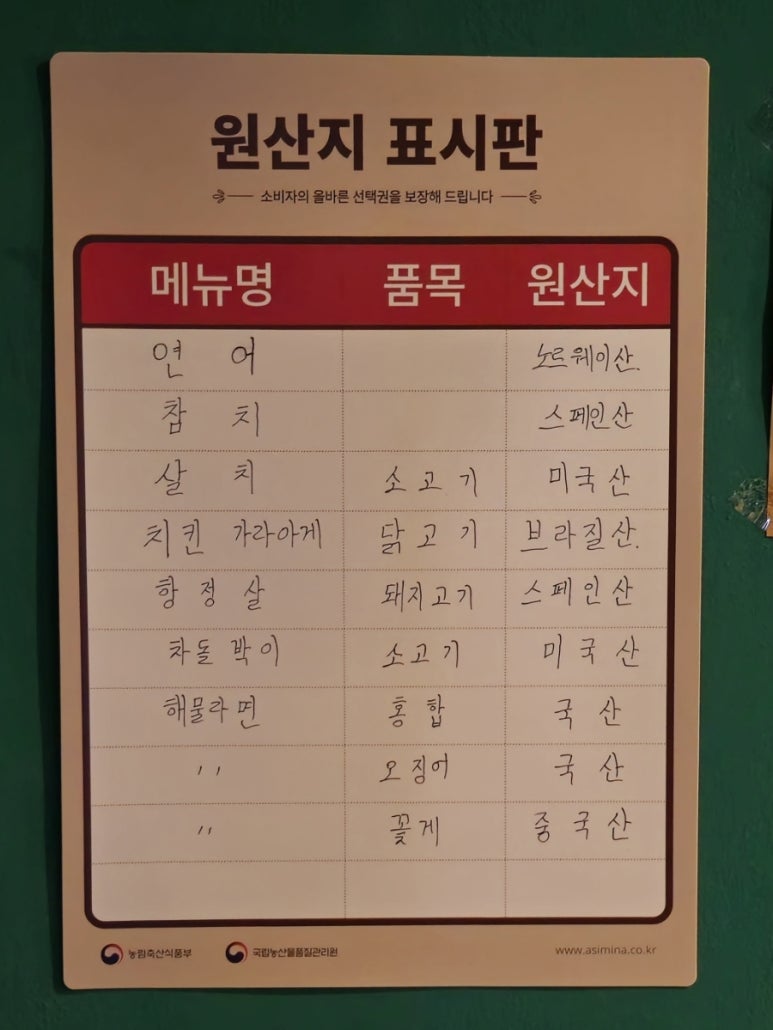 원산지 표시판
소비자의 올바른 선택권을 보장해 드립니다
메뉴명 품목 원산지
연어 노르웨이산.
참치 스페인산
살치 소고기 미국산
치킨 가라아게 닭고기 브라질산.
항정살 돼지고기 스페인산
차돌박이 소고기 미국산
해물라면 홍합 국산
〃 오징어 국산
〃 꽃게 중국산
농림축산식품부 국립농산물품질관리원 www.asimina.co.kr